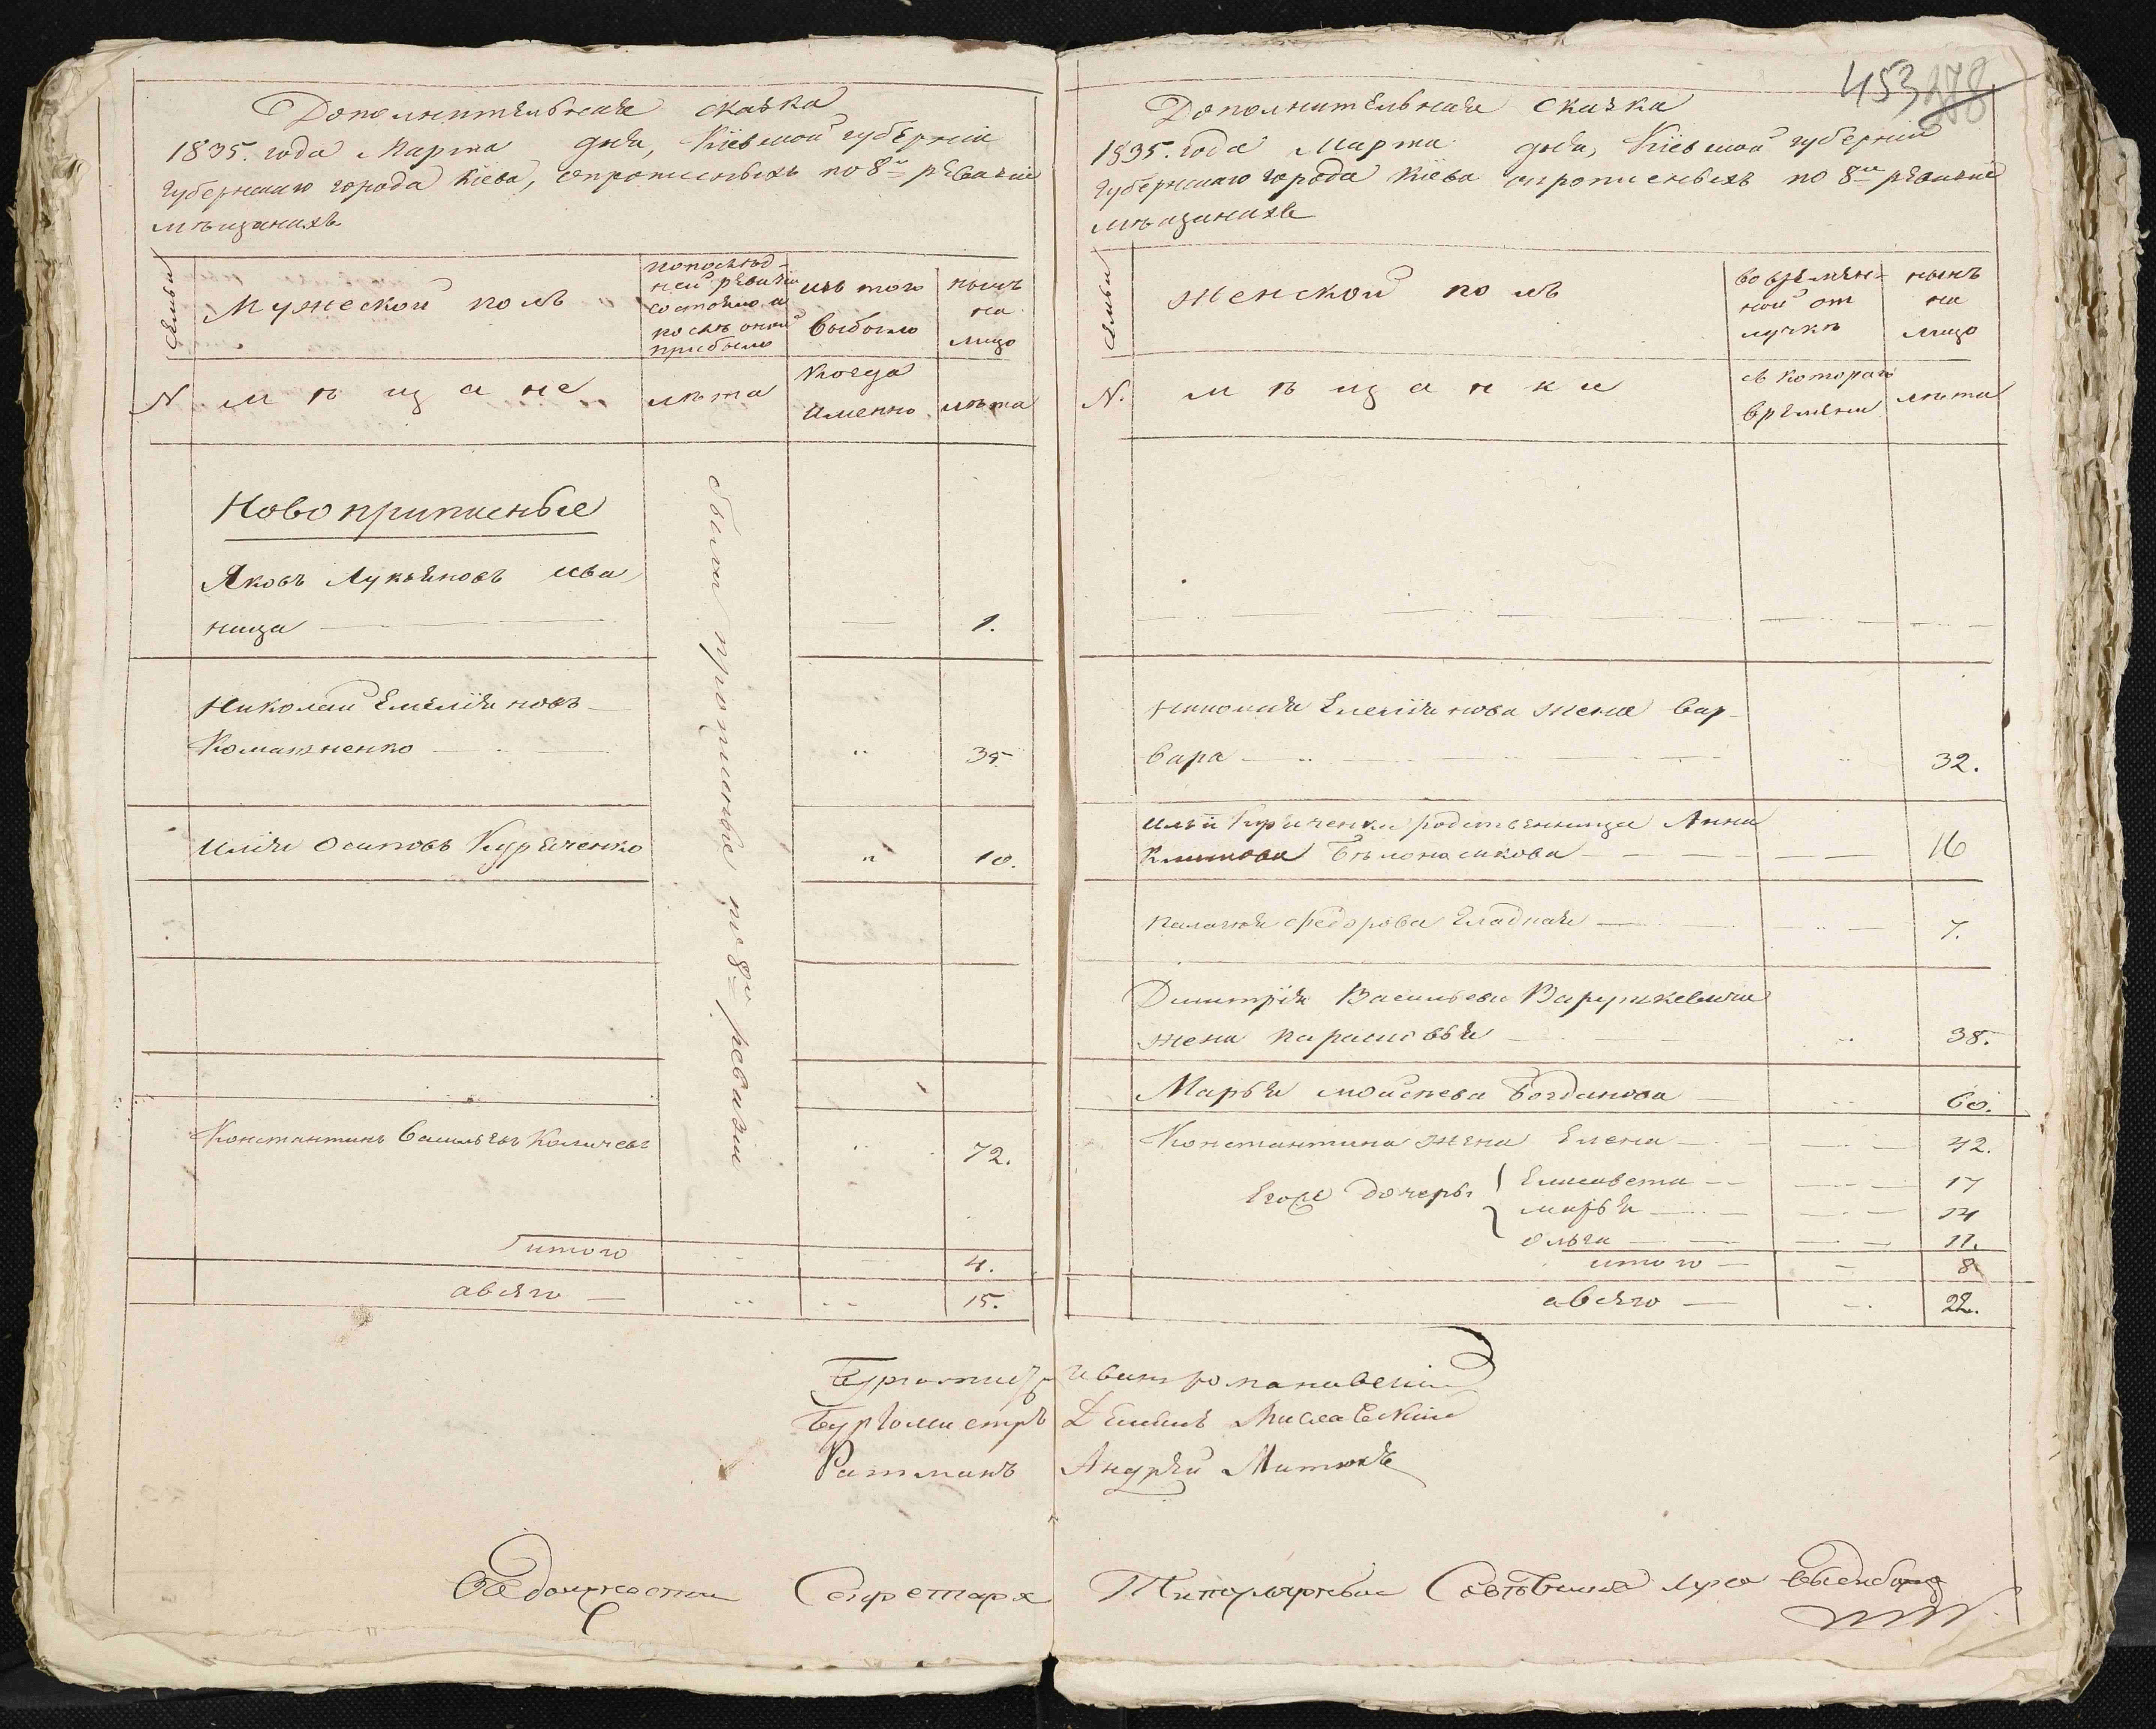 Дополнительная сказка
1835. года Марта дня, Кіевской губерніи
Губернскаго города Кіева, о прописныхъ по 8й ревизіи
мѣщанахъ
Семьи
Мужеской полъ
по послѣд-
ней ревизіи
состояло и
послѣ оной
прибыло
изъ того
выбыло
нынѣ
на
лицо
N
мѣщане
лѣта
когда
имянно
лѣта
Новоприписные
были прописныя по 8й ревизіи
Яковъ Лукьяновъ Ива
ница 1.
Николай Емеліяновъ
Комашненко 35
Илія Осиповъ Куриченко 10.
Константинъ Васильевъ 72.
итого 4.
а всего 15.
453
278
Дополнительная сказка
1835. года Марта дня, Кіевской губерніи
Губернскаго города Кіева о прописныхъ по 8й ревизіи
мѣщанахъ
Семьи
Женской полъ
во времян-
ной от
лучкѣ
нынѣ
на
лицо
N.
мѣщанки
съ котораго
времяни
лѣта
Николая Емеліянова жена Вар-
вара 32.
Ильи Куриченка родственница Анна
Климова 16
Федорова Гладкая 7.
Димитрія Васильева
жена Парасковья 38.
Марья Мойсѣева Богданова 60.
Константина жена Елена 42.
Егоже дочери Елисавета 17
Марья 14
Ольга 11.
итого 8
а всего 22.
Бургомистръ Иванъ Романовскій
Бургомистръ Мисавскій
Ратманъ Андрей Митюкъ
въ должности Секретаря Титулярный Совѣтникъ